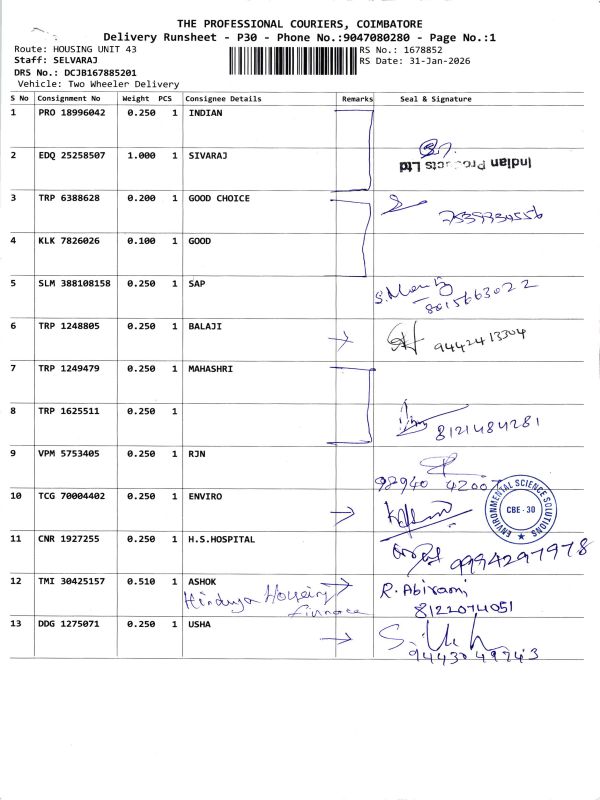 THE PROFESSIONAL COURIERS, COIMBATORE
Delivery Runsheet - P30 - Phone No.:9047080280 - Page No.:1
Route: HOUSING UNIT 43
RS No.: 1678852
Staff: SELVARAJ
RS Date: 31-Jan-2026
DRS No.: DCJB167885201
Vehicle: Two Wheeler Delivery
S No Consignment No Weight PCS Consignee Details Remarks Seal & Signature
1 PRO 18996042 0.250 1 INDIAN
2 EDQ 25258507 1.000 1 SIVARAJ
Indian Products Ltd
3 TRP 6388628 0.200 1 GOOD CHOICE
7539934556
4 KLK 7826026 0.100 1 GOOD
5 SLM 388108158 0.250 1 SAP
8015663022
6 TRP 1248805 0.250 1 BALAJI
9442413304
7 TRP 1249479 0.250 1 MAHASHRI
8 TRP 1625511 0.250 1
8121484281
9 VPM 5753405 0.250 1 RJN
98940 42007
10 TCG 70004402 0.250 1 ENVIRO
ENVIRONMENTAL SCIENCE SOLUTIONS
CBE - 30
11 CNR 1927255 0.250 1 H.S.HOSPITAL
9994297978
12 TMI 30425157 0.510 1 ASHOK
Hinduja Houseing
Finnace
R. Abirami
8122074051
13 DDG 1275071 0.250 1 USHA
9443049943